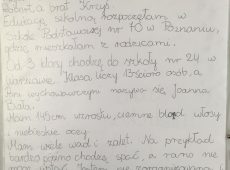 robnit, a brat Krzyś.
Edukację szkolną rozpoczęłam w
Szkole Podstawowej nr 70 w Poznaniu,
gdzie mieszkałam z rodzicami.
Od 3 klasy chodzę do szkoły nr 24 w
Warszawie. Klasa liczy osób, a
wychowawczyni nazywa się Joanna
Biała.
Mam 145cm wzrostu, ciemne blond włosy
i niebieskie oczy.
Mam wiele wad i zalet. Na przykład
bardzo późno chodzę spać, a rano nie